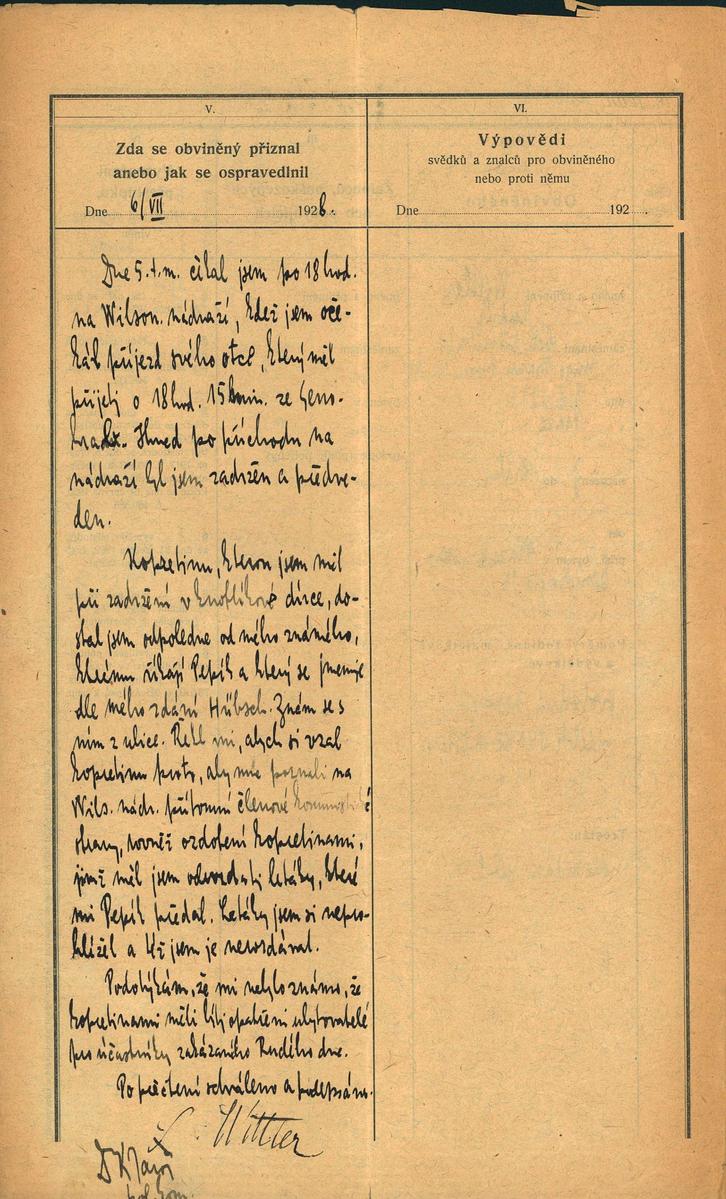 V.
Zda se obviněný přiznal
anebo jak se ospravedlnil
Dne 6/VII 1928.
VI.
Výpovědi
svědků a znalců pro obviněného
nebo proti němu
Dne 192
Dne 5. t. m. čekal jsem po 18 hod.
na Wilson. nádraží, kdež jsem oče-
kával příjezd svého otce, který měl
přijeti o 18 hod. 15 min. ze
Ihned po příchodu na
nádraží byl jsem zadržen a předve-
den.
Kopretinu, kterou jsem měl
při zadržení v knoflíkové dírce, do-
stal jsem odpoledne od mého známého,
kterému říkají Pepík a který se jmenuje
dle mého zdání Hübsch. Znám se s
ním z ulice. Řekl mi, abych si vzal
kopretinu proto, aby mne poznali na
Wils. nádr. přítomní členové komunistické
strany, rovněž ozdobení kopretinami,
jimž měl jsem odevzdati letáky, které
mi Pepík předal. Letáky jsem si nepro-
hlížel a též jsem je nerozdával.
Podotýkám, že mi nebylo známo, že
kopretinami měli býti opatřeni ubytovatelé
pro účastníky zakázaného Rudého dne.
Po přečtení schváleno a podepsáno.
Wittler